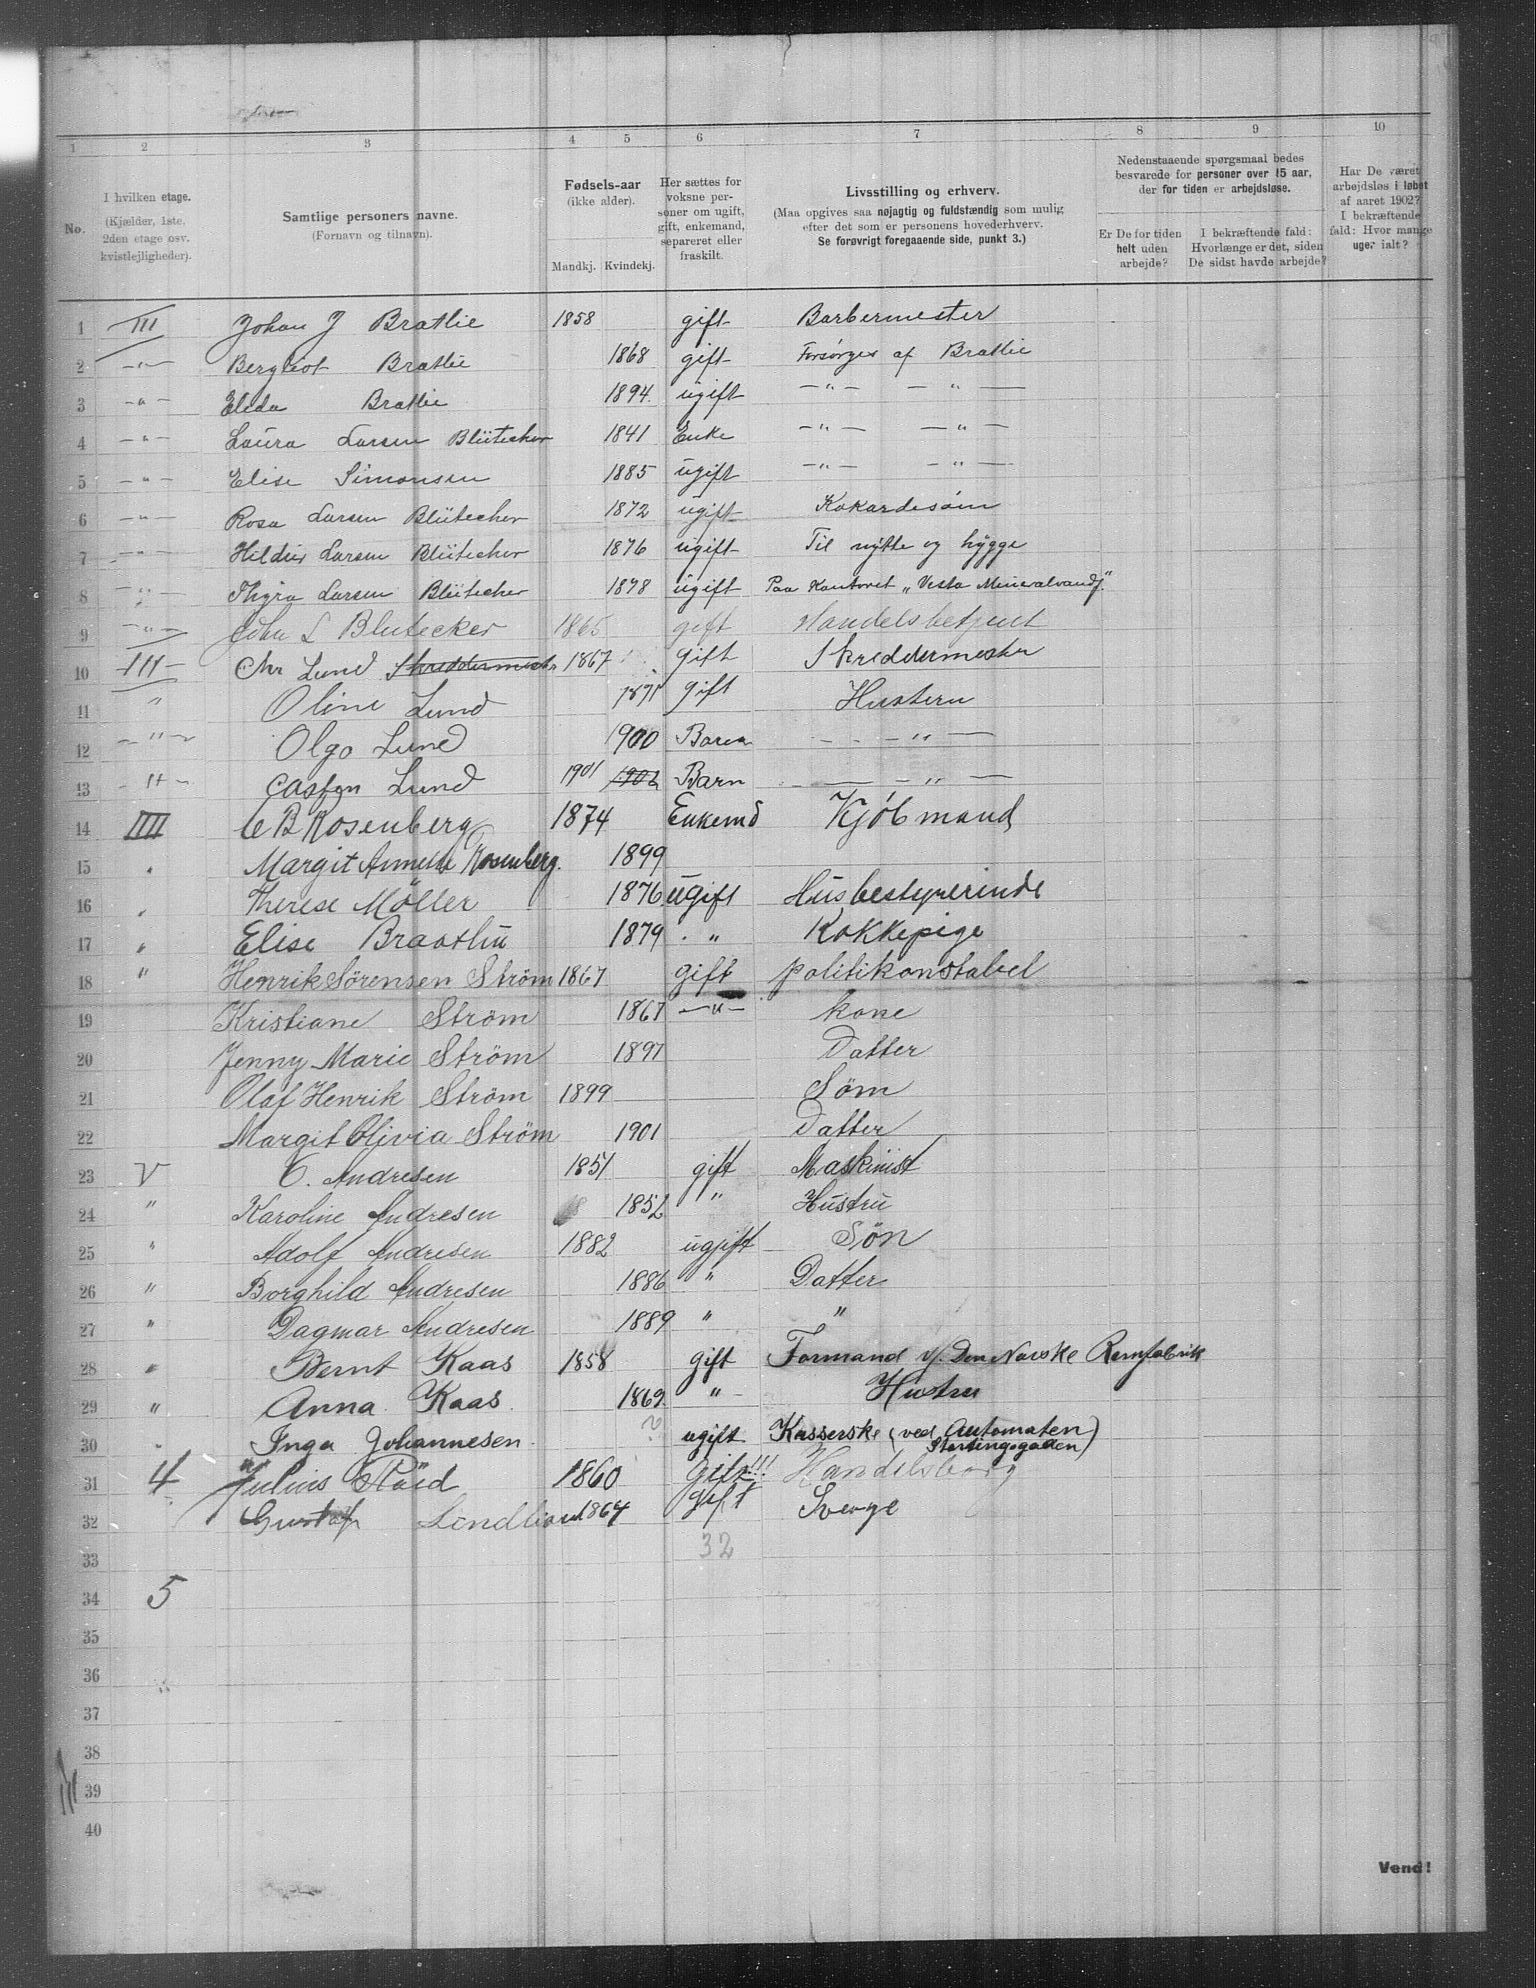 1 2 3 4 5 6 7 8 9 10
No.
I hvilken etage.
(Kjælder, 1ste,
2den etage osv.
kvistlejligheder).
Samtlige personers navne.
(Fornavn og tilnavn).
Fødsels-aar
(ikke alder).
Mandkj. Kvindekj.
Her sættes for
voksne per-
soner om ugift,
gift, enkemand,
separeret eller
fraskilt.
Livsstilling og erhverv.
(Maa opgives saa nøjagtig og fuldstændig som mulig
efter det som er personens hovederhverv.
Se forøvrigt foregaaende side, punkt 3.)
Nedenstaaende spørgsmaal bedes
besvarede for personer over 15 aar,
der for tiden er arbejdsløse.
Er De for tiden
helt uden
arbejde?
I bekræftende fald:
Hvorlænge er det, siden
De sidst havde arbejde?
Har De været
arbejdsløs i løbet
af aaret 1902?
I bekræftende
fald: Hvor mange
uger ialt?
1 III Johan J Bratlie 1858 gift Barbermester
2 -"- Bergliot Bratlie 1868 gift Forsørges af Bratlie
3 -"- Elida Bratlie 1894 ugift -"- -"-
4 -"- Laura Larsen Blütecher 1841 Enke -"- -"-
5 -"- Elise Simonsen 1885 ugift -"- -"-
6 -"- Rosa Larsen Blütecher 1872 ugift Kokardesøm
7 -"- Hildur Larsen Blütecher 1876 ugift Til nytte og hygge
8 -"- Thyra Larsen Blütecher 1878 ugift Paa Kontoret „Vesta Mineralvandf."
9 -"- John L Blutecker 1865 gift Handelsbetjent
10 III Chr Lund Skreddermester 1867 gift Skreddermester
11 " Oline Lund 1871 gift Hustern
12 -"- Olga Lund 1900 Baren - - -"-
13 -"- Casfen Lund 1901 1902 Barn - -"-
14 IIII C B Rosenberg 1874 Enkemd Kjøbmand
15 " Margit Annette Rosenberg. 1899
16 " Therese Möller 1876 ugift Husbestyrerinde
17 " Elise Braathu 1879 " Kokkepige
18 " Henrik Sörensen Ström 1867 gift politikonstabel
19 Kristiane Ström 1867 -"- kone
20 Jenny Marie Ström 1897 Datter
21 Olaf Henrik Ström 1899 Söm
22 Margit Olivia Ström 1901 Datter
23 V C. Andresen 1851 gift Maskinist
24 " Karoline Andresen 1852 " Hustru
25 " Adolf Andresen 1882 ugift Søn
26 " Borghild Andresen 1886 " Datter
27 " Dagmar Andresen 1889 " "
28 " Bernt Kaas 1858 gift Formand v/. Den Norske Remfabrik
29 " Anna Kaas 1869 " Hustru
30 " Inga Johannesen ? ugift Kasserske (ved Automaten
Stortingsgaden)
31 4 Julius 1860 gift!!! Handelsborg
32 Gustaf Lindlund 1864 gift Sverge
33 32
34 5
35
36
37
38
39
40
Vend!